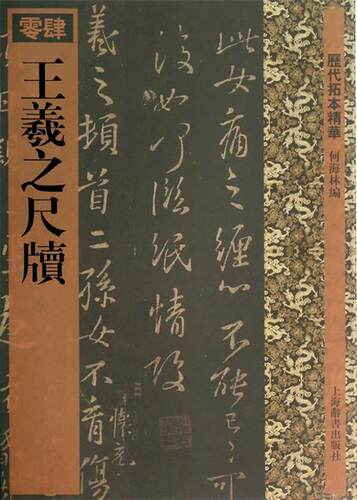 零肆
王羲之尺牘
歷代拓本精華
何海林編
上海辭書出版社
此女痛之纏心不能已已可
復如何臨紙情酸
羲之頓首二孫女不育傷
悼兼